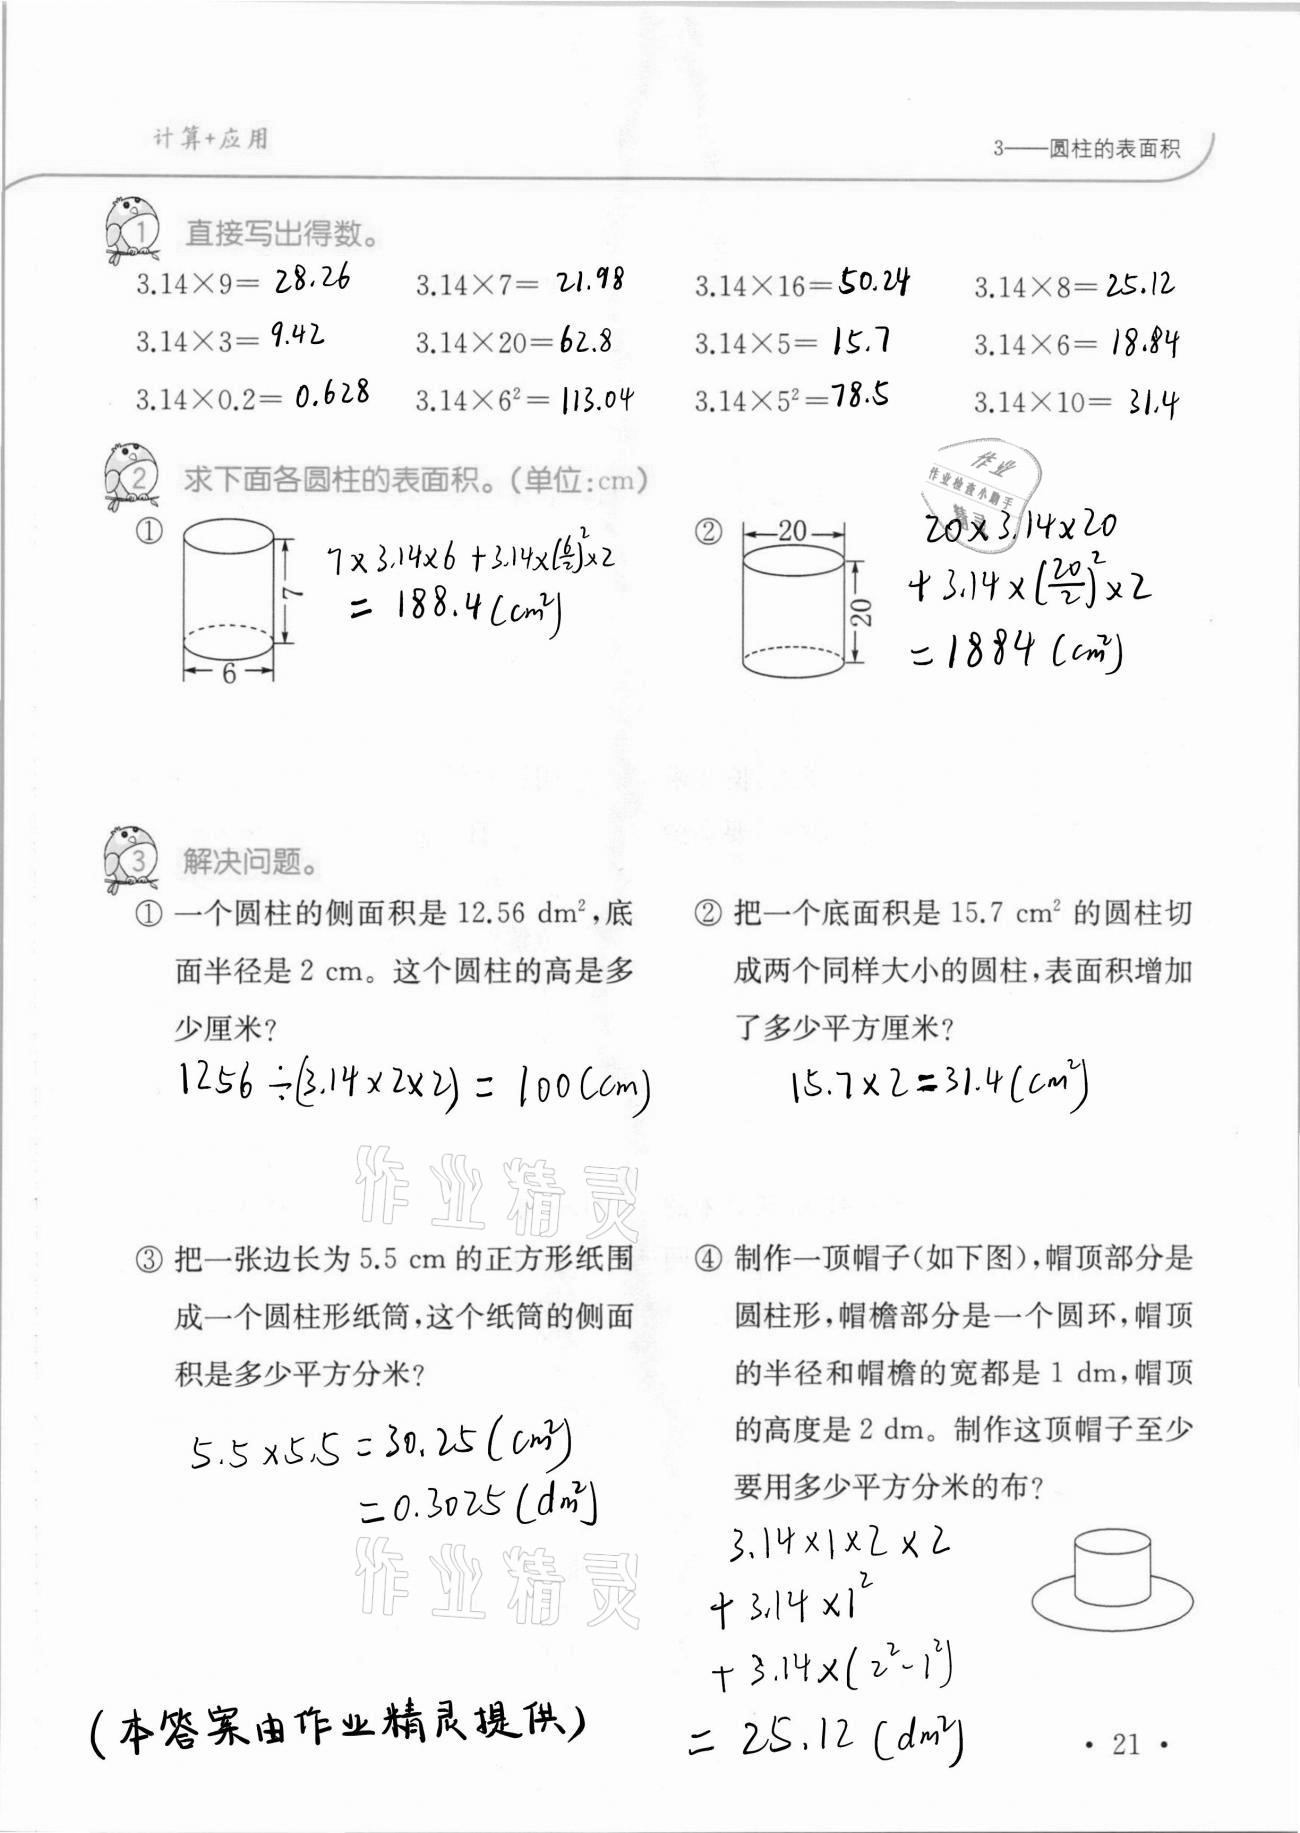 计算+应用
3——圆柱的表面积
1 直接写出得数。
3.14×9= 28.26 3.14×7= 21.98 3.14×16=50.24 3.14×8= 25.12
3.14×3= 9.42 3.14×20=62.8 3.14×5= 15.7 3.14×6= 18.84
3.14×0.2= 0.628 3.14×6²= 113.04 3.14×5²=78.5 3.14×10= 31.4
2 求下面各圆柱的表面积。(单位:cm)
①
7
6
7×3.14×6+3.14×(6/2)²×2
=188.4(cm²)
②
20
20
20×3.14×20
+3.14×(20/2)²×2
=1884(cm²)
作业
作业检查小助手
精灵
3 解决问题。
① 一个圆柱的侧面积是 12.56 dm²,底
面半径是 2 cm。这个圆柱的高是多
少厘米?
1256÷(3.14×2×2)=100(cm)
② 把一个底面积是 15.7 cm² 的圆柱切
成两个同样大小的圆柱,表面积增加
了多少平方厘米?
15.7×2=31.4(cm²)
作业精灵
③ 把一张边长为 5.5 cm 的正方形纸围
成一个圆柱形纸筒,这个纸筒的侧面
积是多少平方分米?
5.5×5.5=30.25(cm²)
=0.3025(dm²)
作业精灵
④ 制作一顶帽子(如下图),帽顶部分是
圆柱形,帽檐部分是一个圆环,帽顶
的半径和帽檐的宽都是 1 dm,帽顶
的高度是 2 dm。制作这顶帽子至少
要用多少平方分米的布?
3.14×1×2×2
+3.14×1²
+3.14×(2²-1²)
=25.12(dm²)
(本答案由作业精灵提供)
· 21 ·